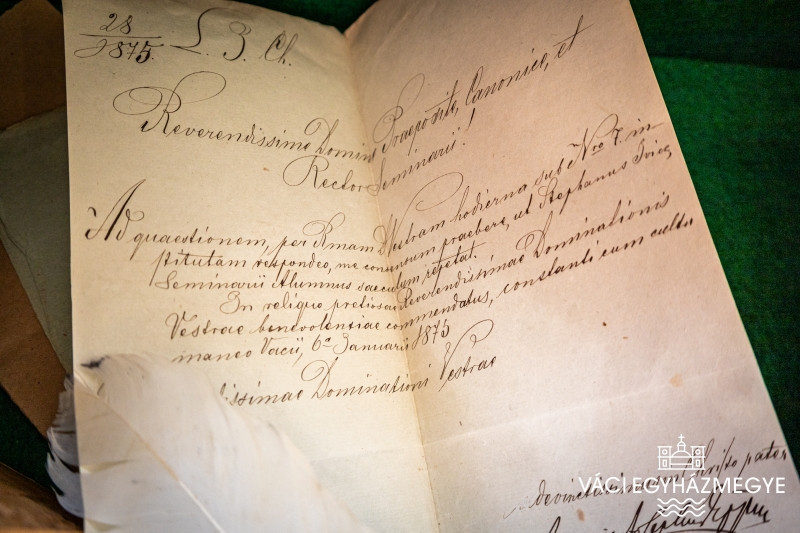 28
1875. L. 3. Ch.
Reverendissime Domine Praeposite, Canonice, et
Rector Seminarii!
Ad quaestionem, per Rmam DVestram hodierna sub Nro 7. in
stitutam respondeo, me consensum praebere, ut Stephanus
Seminarii Alumnus saeculum repetat.
In reliquo pretiosae Reverendissimae Dominationis
Vestrae benevolentiae commendatus, constanti cum cultu
maneo Vacii, 6a Januarii 1875
issimae Dominationi Vestrae
devinctissimus in Christo pater
VÁCI EGYHÁZMEGYE